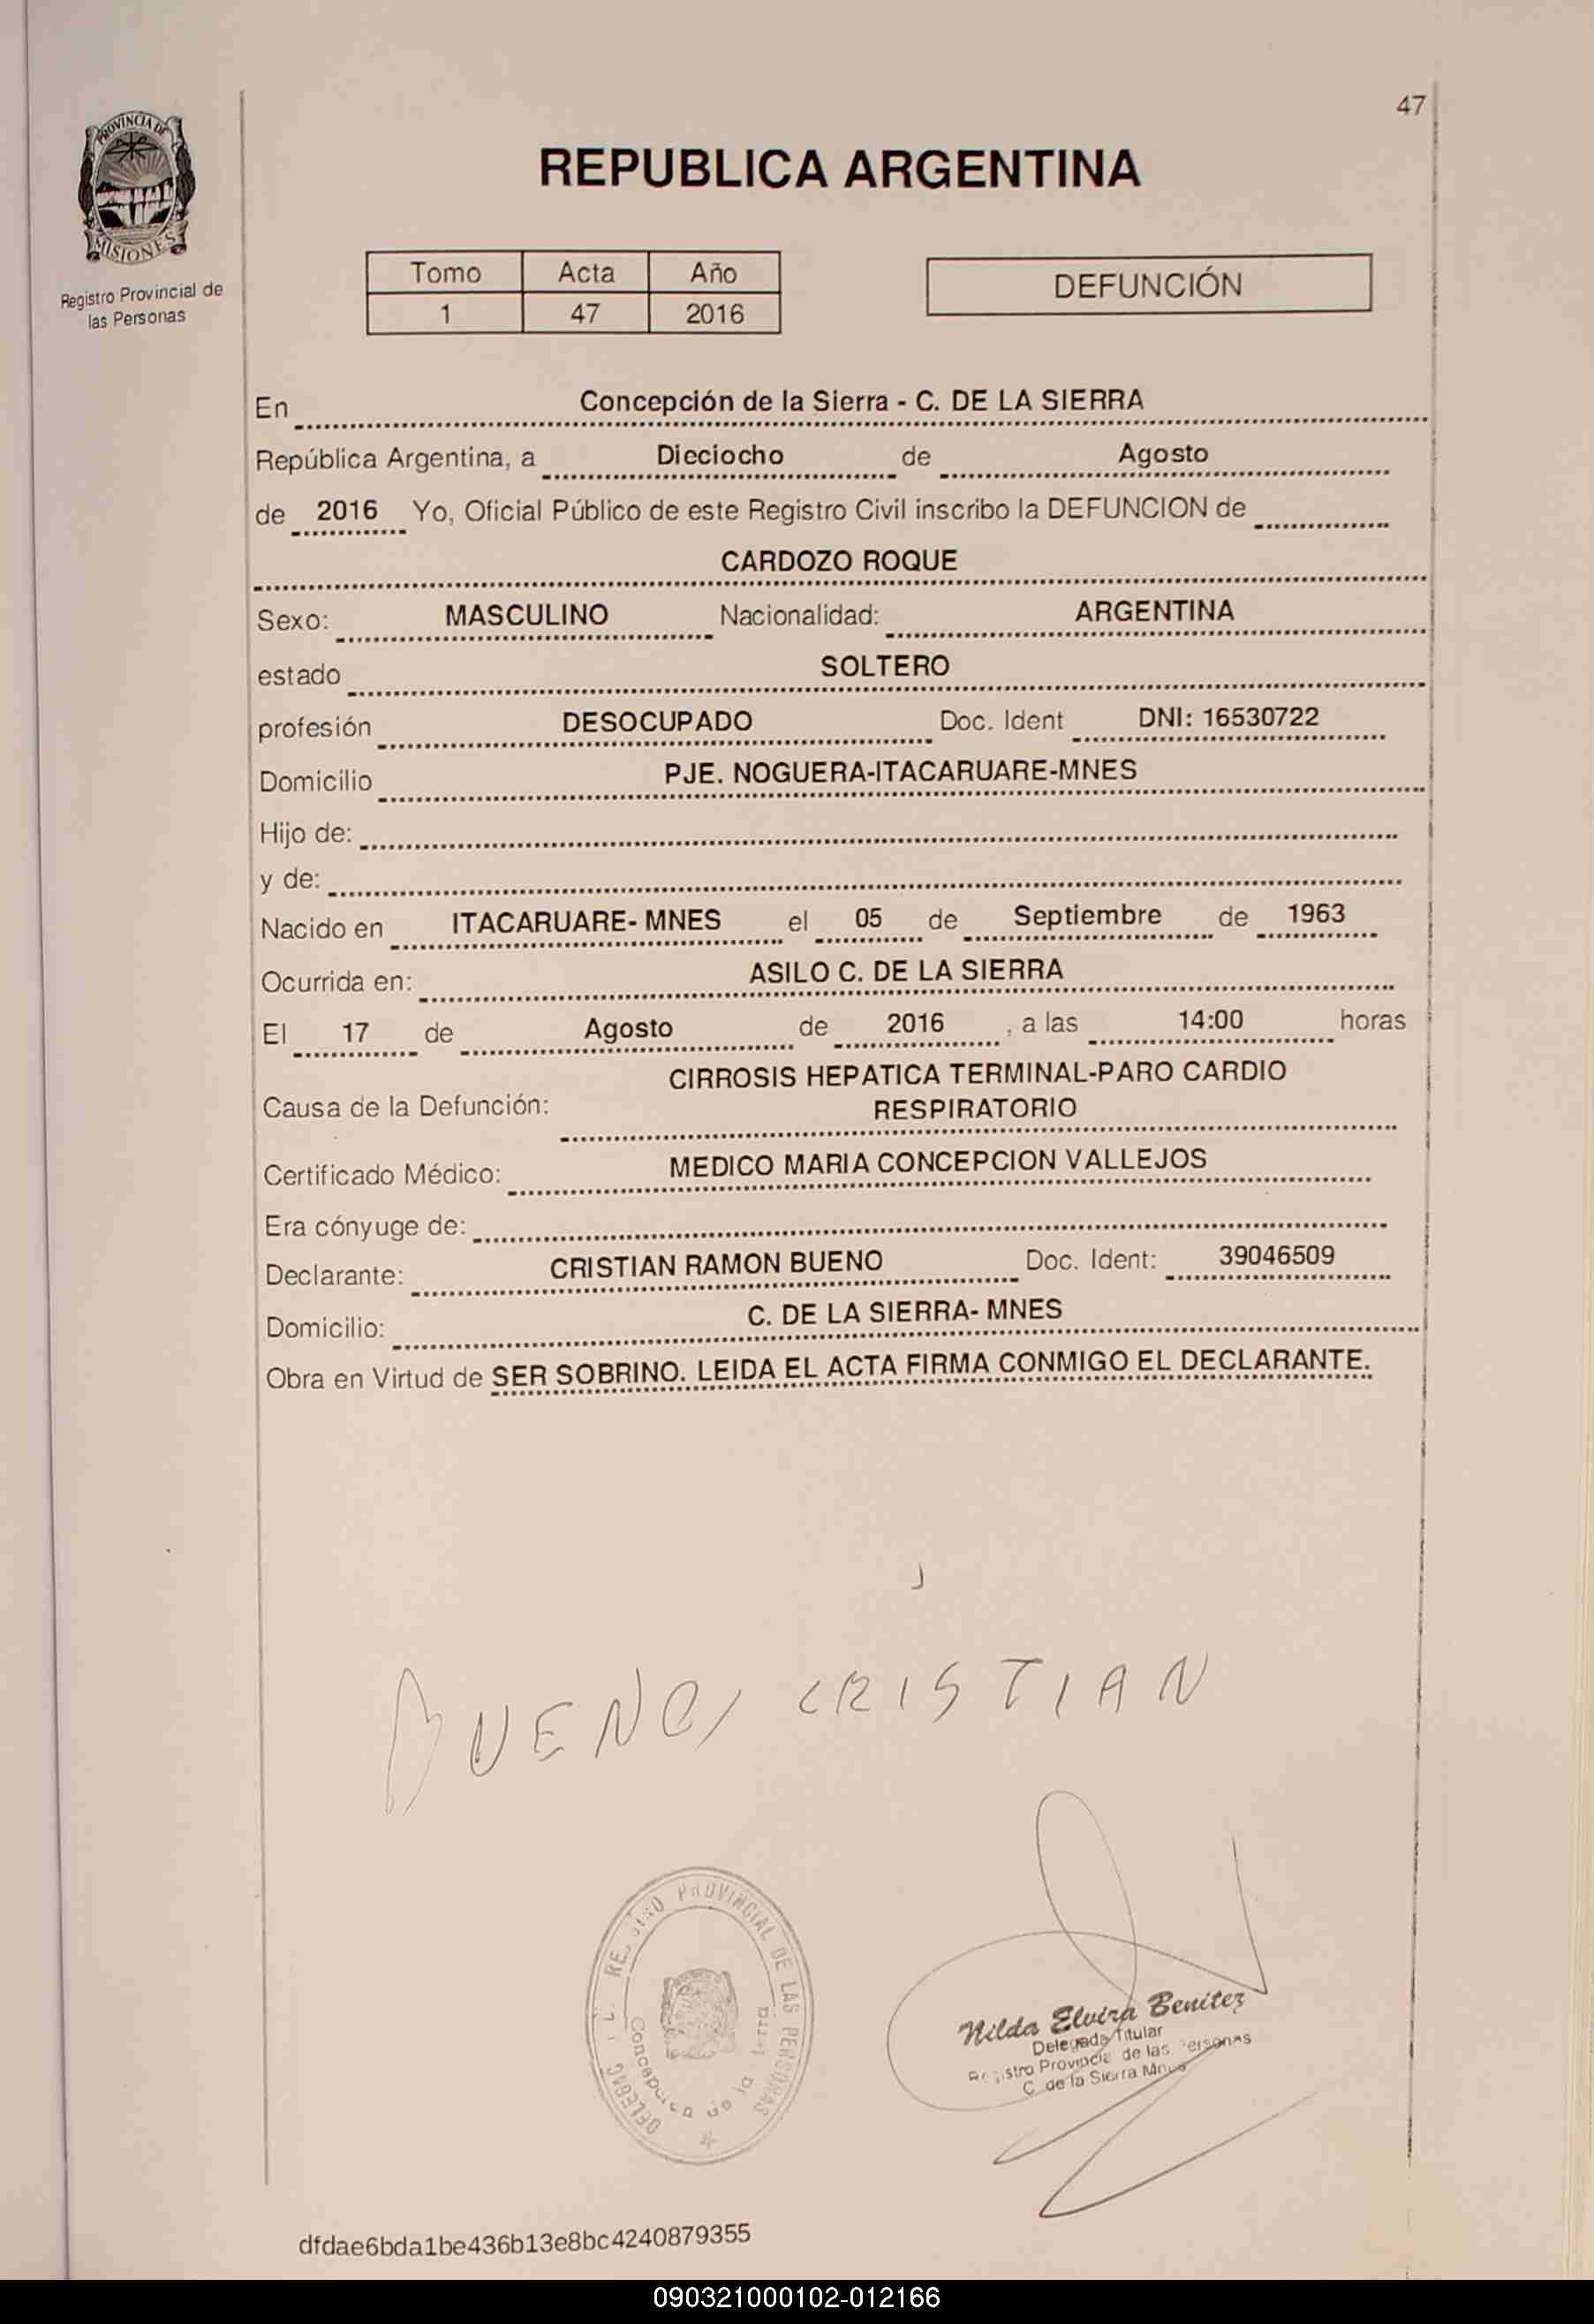 47
PROVINCIA DE
MISIONES
Registro Provincial de
las Personas
REPUBLICA ARGENTINA
Tomo Acta Año
1 47 2016
DEFUNCIÓN
En Concepción de la Sierra - C. DE LA SIERRA
República Argentina, a Dieciocho de Agosto
de 2016 Yo, Oficial Público de este Registro Civil inscribo la DEFUNCION de
CARDOZO ROQUE
Sexo: MASCULINO Nacionalidad: ARGENTINA
estado SOLTERO
profesión DESOCUPADO Doc. Ident DNI: 16530722
Domicilio PJE. NOGUERA-ITACARUARE-MNES
Hijo de:
y de:
Nacido en ITACARUARE- MNES el 05 de Septiembre de 1963
Ocurrida en: ASILO C. DE LA SIERRA
El 17 de Agosto de 2016 , a las 14:00 horas
CIRROSIS HEPATICA TERMINAL-PARO CARDIO
Causa de la Defunción: RESPIRATORIO
Certificado Médico: MEDICO MARIA CONCEPCION VALLEJOS
Era cónyuge de:
Declarante: CRISTIAN RAMON BUENO Doc. Ident: 39046509
Domicilio: C. DE LA SIERRA- MNES
Obra en Virtud de SER SOBRINO. LEIDA EL ACTA FIRMA CONMIGO EL DECLARANTE.
BUENO, CRISTIAN
PROVINCIAL DE LAS PERSONAS
Concepción de la
Nilda Elvira Benitez
Delegada Titular
Registro Provincial de las Personas
C. de la Sierra Mnes
dfdae6bda1be436b13e8bc4240879355
090321000102-012166